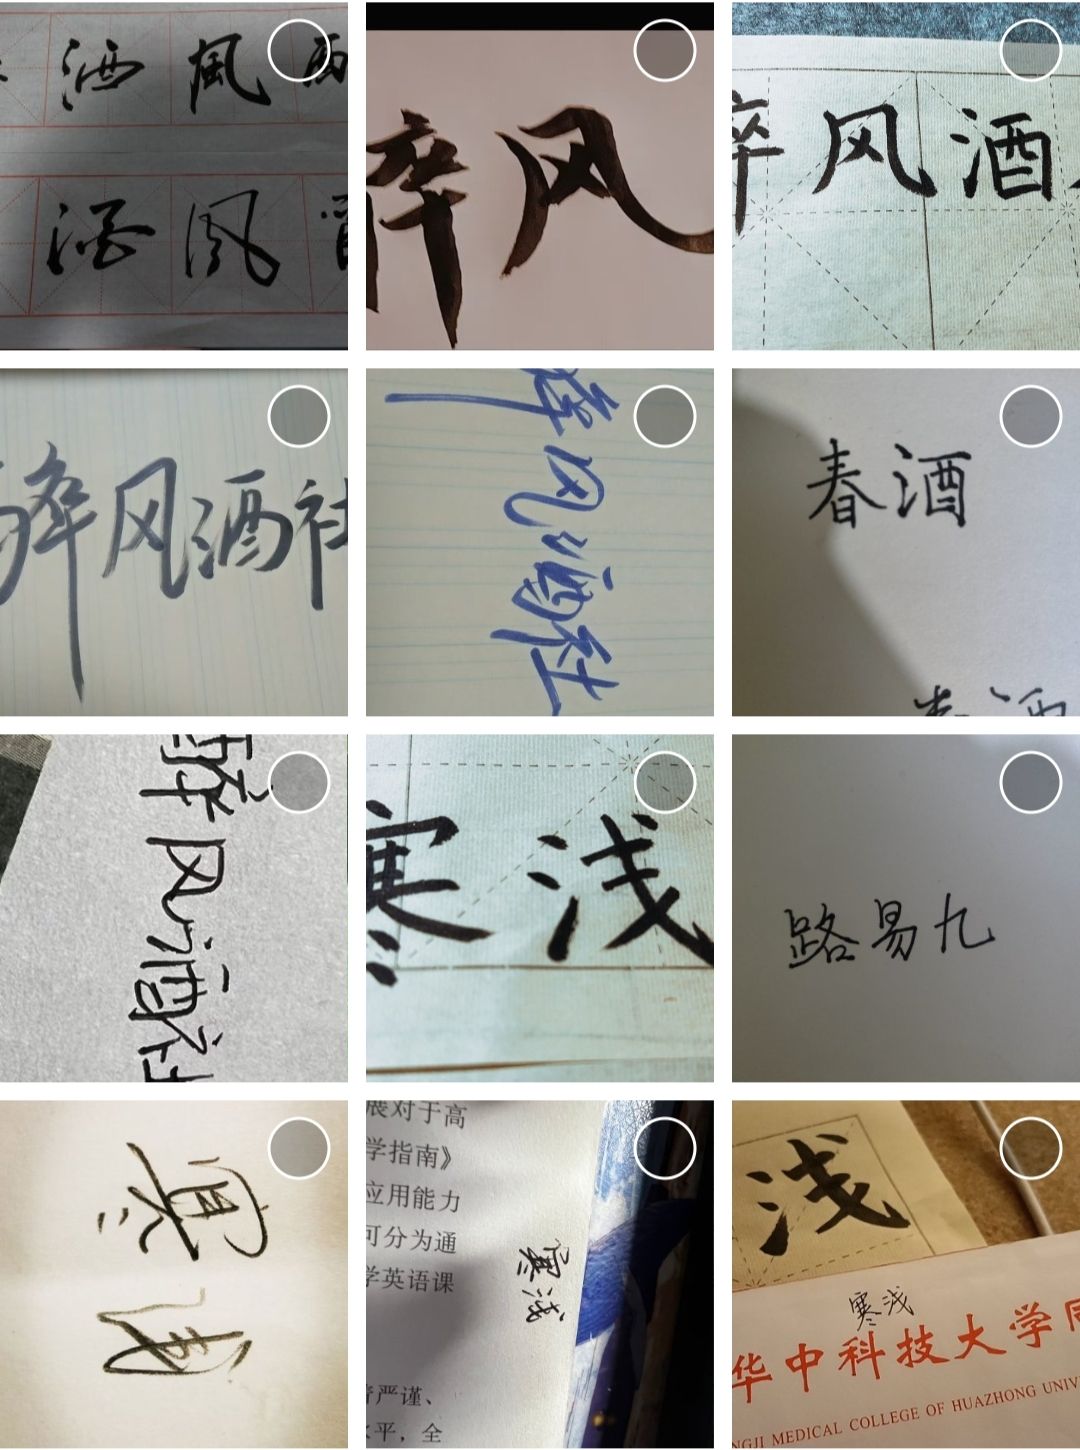 酒風
酒風
醉风
醉风酒
醉风酒社
醉风酒社
春酒
春酒
醉风酒社
寒浅
路易九
寒浅
展对于高
学指南》
应用能力
可分为通
学英语课
寒浅
严谨、
水平，全
浅
寒浅
华中科技大学同
NGJI MEDICAL COLLEGE OF HUAZHONG UNIV